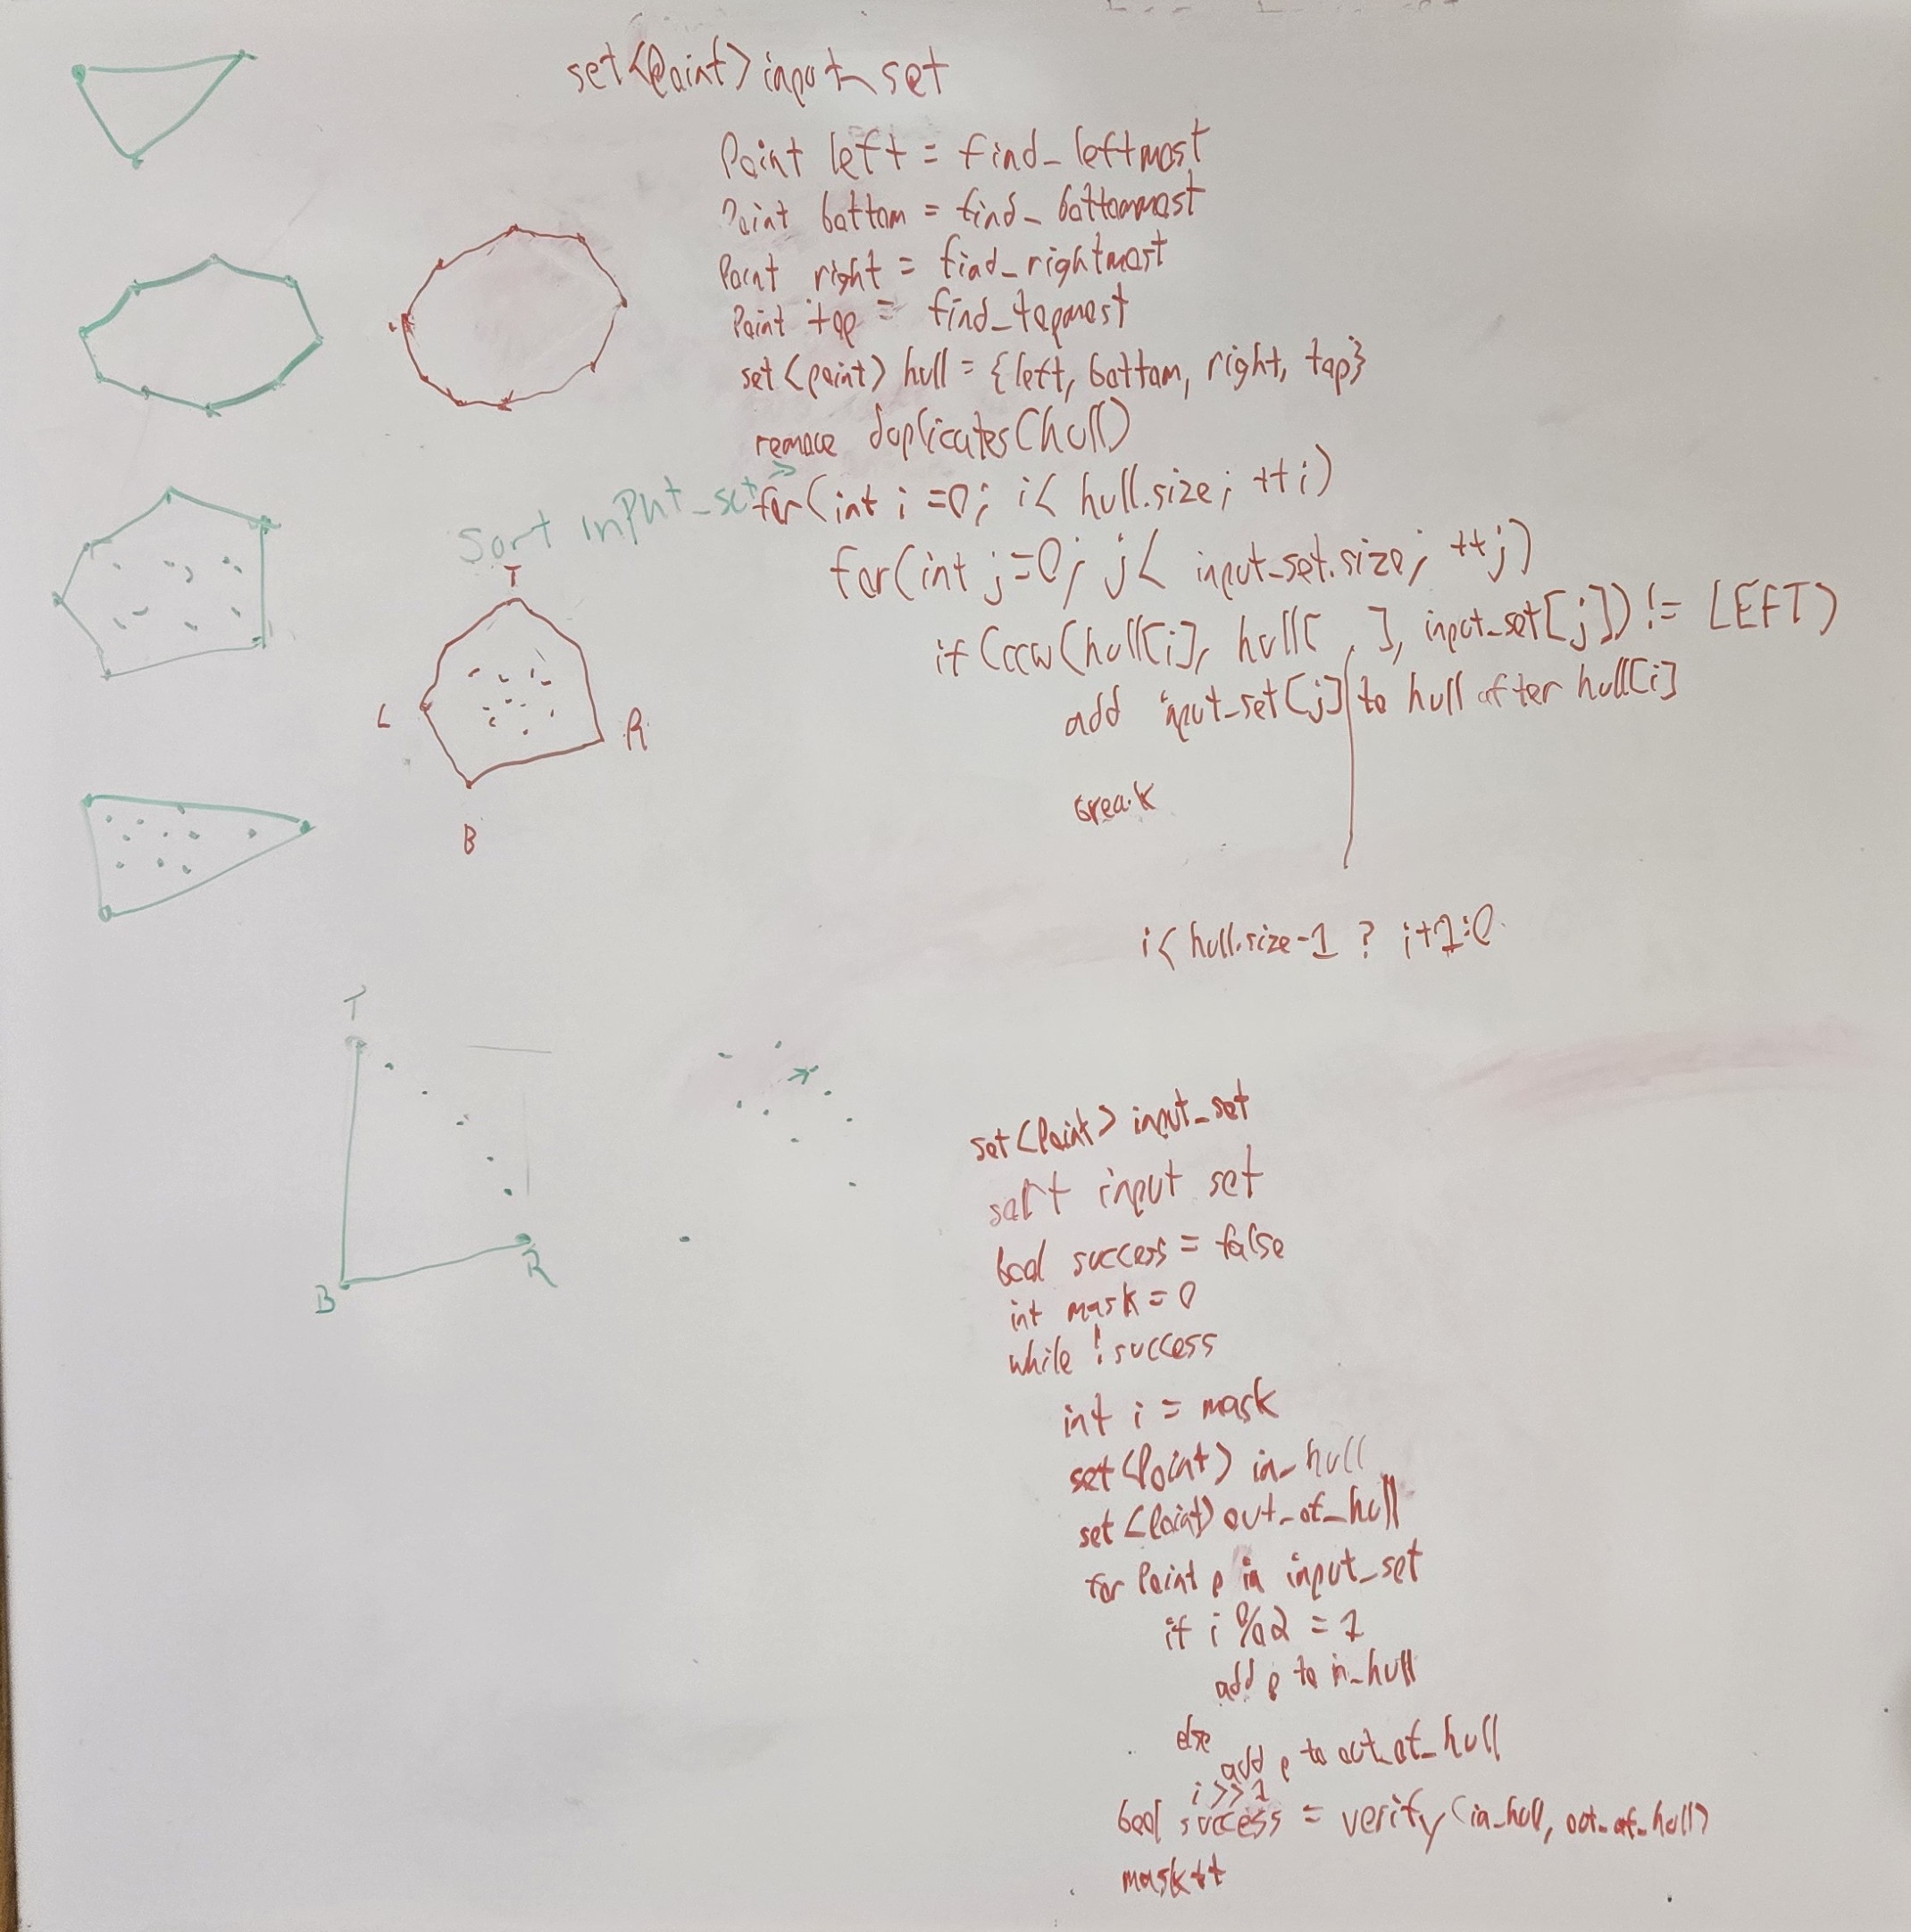 set<Point> input_set
Point left = find_leftmost
Point bottom = find_bottommost
Point right = find_rightmost
Point top = find_topmost
set<point> hull = {left, bottom, right, top}
remove duplicates(hull)
Sort input_set
for(int i=0; i< hull.size; ++i)
for(int j=0; j< input_set.size; ++j)
if(ccw(hull[i], hull[ ], input_set[j]) != LEFT)
add input_set[j] to hull after hull[i]
break
i< hull.size-1 ? i+1:0
T
L
R
B
T
B
R
set<Point> input_set
sort input set
bool success = false
int mask = 0
while !success
int i = mask
set<Point> in_hull
set<Point> out_of_hull
for Point p in input_set
if i %2 = 1
add p to in_hull
else
add p to out_of_hull
i >>1
bool success = verify(in_hull, out_of_hull)
mask++